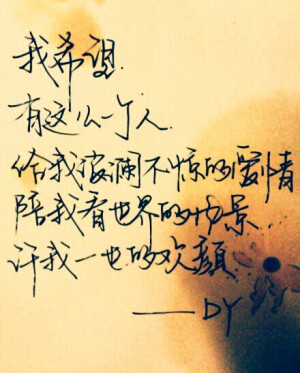 我希望
有这么一个人
给我波澜不惊的爱情
陪我看世界的场景
许我一世的欢颜
——DY